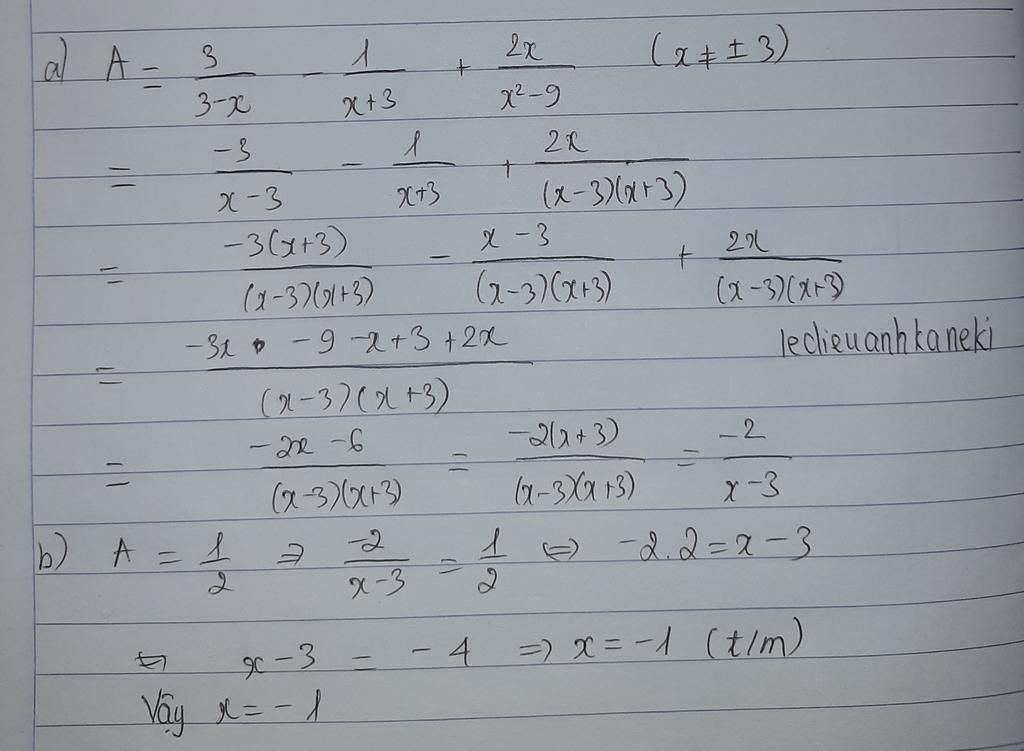 a) A = 3/(3-x) - 1/(x+3) + 2x/(x²-9) (x ≠ ± 3)
= -3/(x-3) - 1/(x+3) + 2x/((x-3)(x+3))
= -3(x+3)/((x-3)(x+3)) - (x-3)/((x-3)(x+3)) + 2x/((x-3)(x+3))
= (-3x - 9 - x + 3 + 2x)/((x-3)(x+3))
ledieuanhkaneki
= (-2x - 6)/((x-3)(x+3)) = -2(x+3)/((x-3)(x+3)) = -2/(x-3)
b) A = 1/2 => -2/(x-3) = 1/2 <=> -2.2 = x - 3
<=> x - 3 = -4 => x = -1 (t/m)
Vậy x = -1